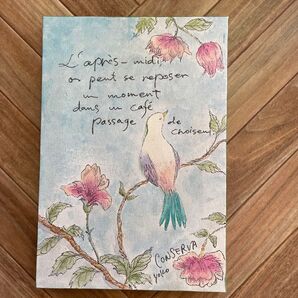 L'après-midi
on peut se reposer
un moment
dans un café
passage de Choiseul
CONSERVA
yoko